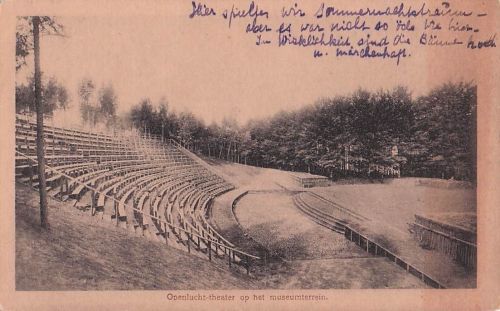 Hier spielten wir Sommernachtstraum –
aber es war nicht so [...] wie hier.
In Wirklichkeit sind die Bäume hoch
u. märchenhaft.
Openlucht-theater op het museumterrein.